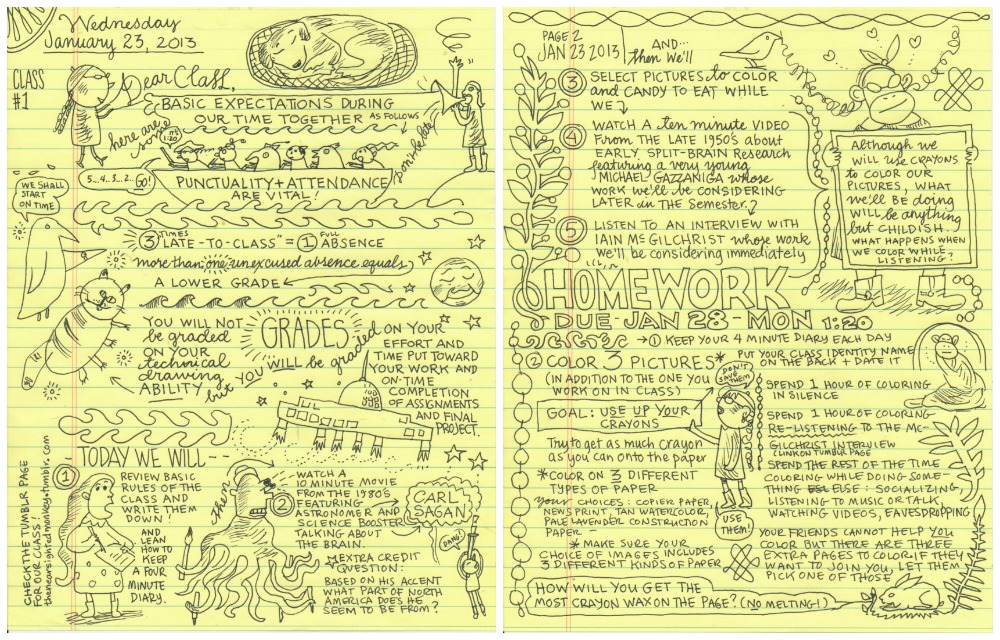 Wednesday
January 23, 2013
CLASS
#1
Dear Class,
here are
some
BASIC EXPECTATIONS DURING
OUR TIME TOGETHER AS FOLLOWS
IT'S
1:20
5...4..3...2.. GO!
PUNCTUALITY + ATTENDANCE
ARE VITAL!
don't be late
WE SHALL
START
ON TIME
3 TIMES "LATE-TO-CLASS" = 1 FULL ABSENCE
more than one unexcused absence equals
A LOWER GRADE
GRADES
YOU WILL NOT
be graded
ON YOUR
technical
drawing
ABILITY but
YOU WILL be graded ON YOUR
EFFORT AND
TIME PUT TOWARD
YOUR WORK AND
ON-TIME
COMPLETION
OF ASSIGNMENTS
AND FINAL
PROJECT
TODAY WE WILL --
1
REVIEW BASIC
RULES OF THE
CLASS AND
WRITE THEM
DOWN!
AND
LEAN
HOW TO
KEEP
A FOUR
MINUTE
DIARY.
CHECK THE TUMBLR PAGE
FOR OUR CLASS!
thenearsightedmonkey.tumblr.com
then
2
WATCH A
10 MINUTE MOVIE
FROM THE 1980'S
FEATURING
ASTRONOMER AND
SCIENCE BOOSTER
TALKING ABOUT
THE BRAIN.
CARL
SAGAN
DANG!
EXTRA CREDIT
QUESTION:
BASED ON HIS ACCENT
WHAT PART OF NORTH
AMERICA DOES HE
SEEM TO BE FROM?
PAGE 2
JAN 23 2013
AND...
then We'll
3 SELECT PICTURES to COLOR
and CANDY TO EAT WHILE
WE
4 WATCH A ten minute VIDEO
From THE LATE 1950'S about
EARLY SPLIT-BRAIN Research
featuring a very young
MICHAEL GAZZANIGA whose
WORK we'll be CONSIDERING
LATER in THE Semester.
5 LISTEN TO AN INTERVIEW WITH
IAIN McGILCHRIST whose work
We'll be considering immediately
Although we
WILL use CRAYONS
to COLOR OUR
PICTURES, WHAT
we'll BE doing
WILL BE anything
but CHILDISH.
WHAT HAPPENS WHEN
WE COLOR WHILE
LISTENING?
HOMEWORK
DUE-JAN 28-MON 1:20
1 KEEP YOUR 4 MINUTE DIARY EACH DAY
2 COLOR 3 PICTURES*
(IN ADDITION TO THE ONE YOU
WORK ON IN CLASS)
PUT YOUR CLASS IDENTITY NAME
ON THE BACK + DATE IT
GOAL: USE UP YOUR
CRAYONS
Try to get as much crayon
as you can onto the paper
*COLOR ON 3 DIFFERENT
TYPES OF PAPER
Your CHOICES: COPIER PAPER,
NEWSPRINT, TAN WATERCOLOR,
PALE LAVENDER CONSTRUCTION
PAPER
*MAKE SURE YOUR
CHOICE OF IMAGES INCLUDES
3 DIFFERENT KINDS OF PAPER
DON'T
SAVE
THEM!
USE
THEM!
SPEND 1 HOUR OF COLORING
IN SILENCE
SPEND 1 HOUR OF COLORING
RE-LISTENING TO THE MC-
GILCHRIST INTERVIEW
LINK ON TUMBLR PAGE
SPEND THE REST OF THE TIME
COLORING WHILE DOING SOME
THING ELSE: SOCIALIZING,
LISTENING TO MUSIC OR TALK,
WATCHING VIDEOS, EAVESDROPPING
YOUR FRIENDS CANNOT HELP YOU
COLOR BUT THERE ARE THREE
EXTRA PAGES TO COLOR IF THEY
WANT TO JOIN YOU, LET THEM
PICK ONE OF THOSE
HOW WILL YOU GET THE
MOST CRAYON WAX ON THE PAGE? (NO MELTING!)